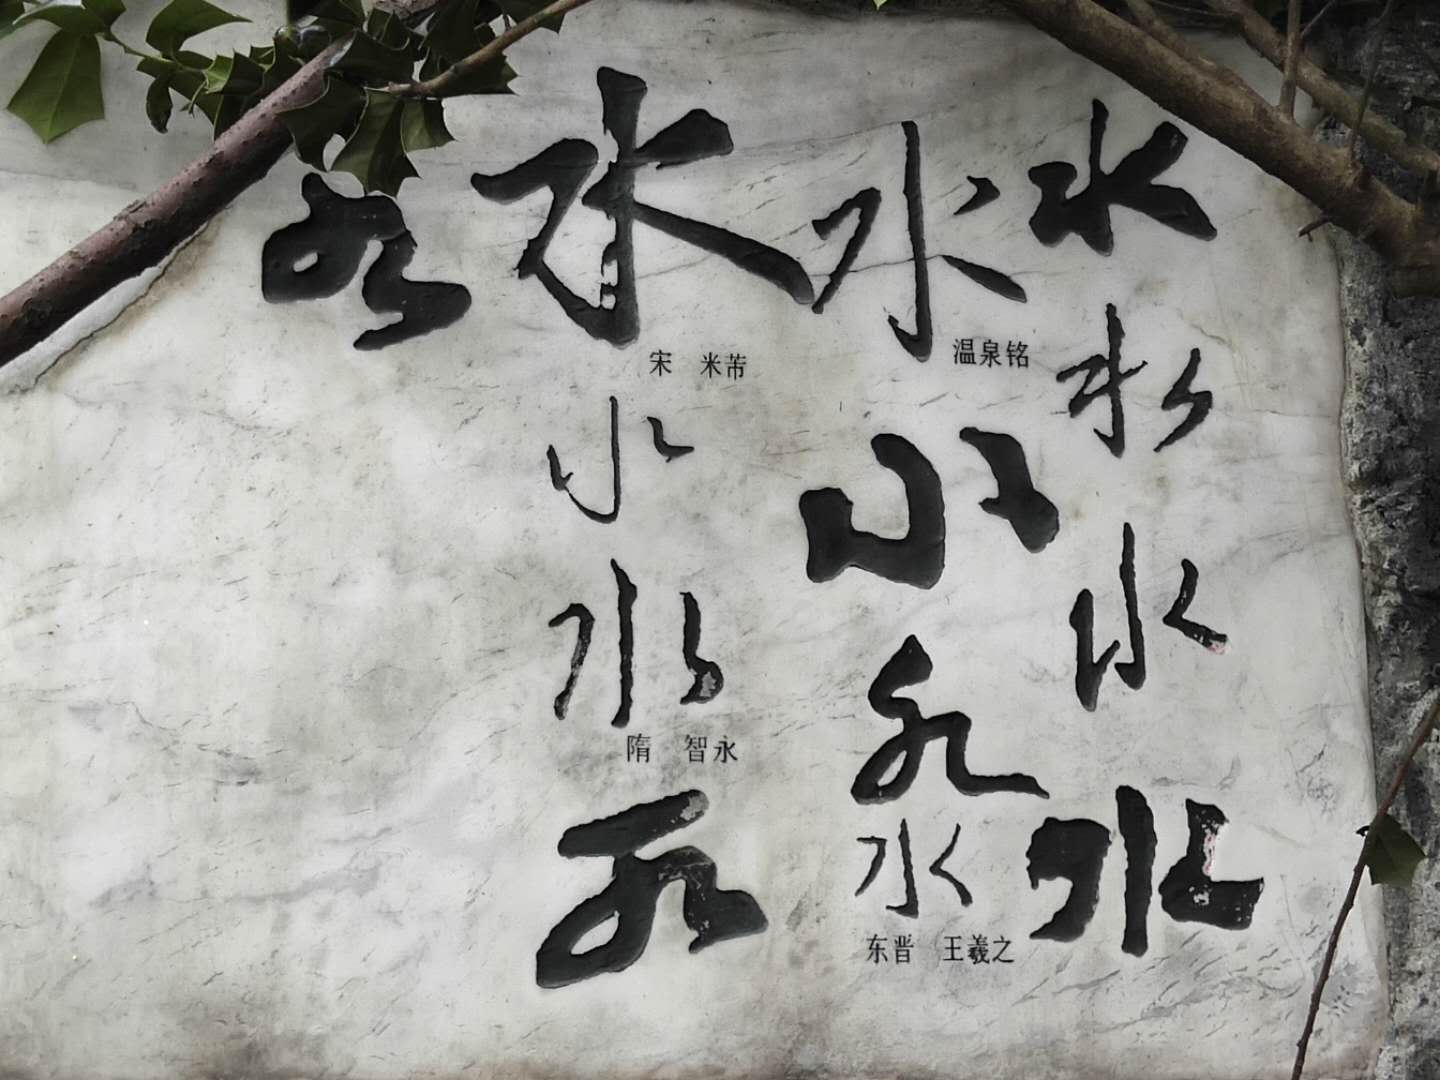 水
水
水
水
水
温泉铭
水
水
水
东晋 王羲之
水
宋 米芾
水
水
隋 智永
水
水